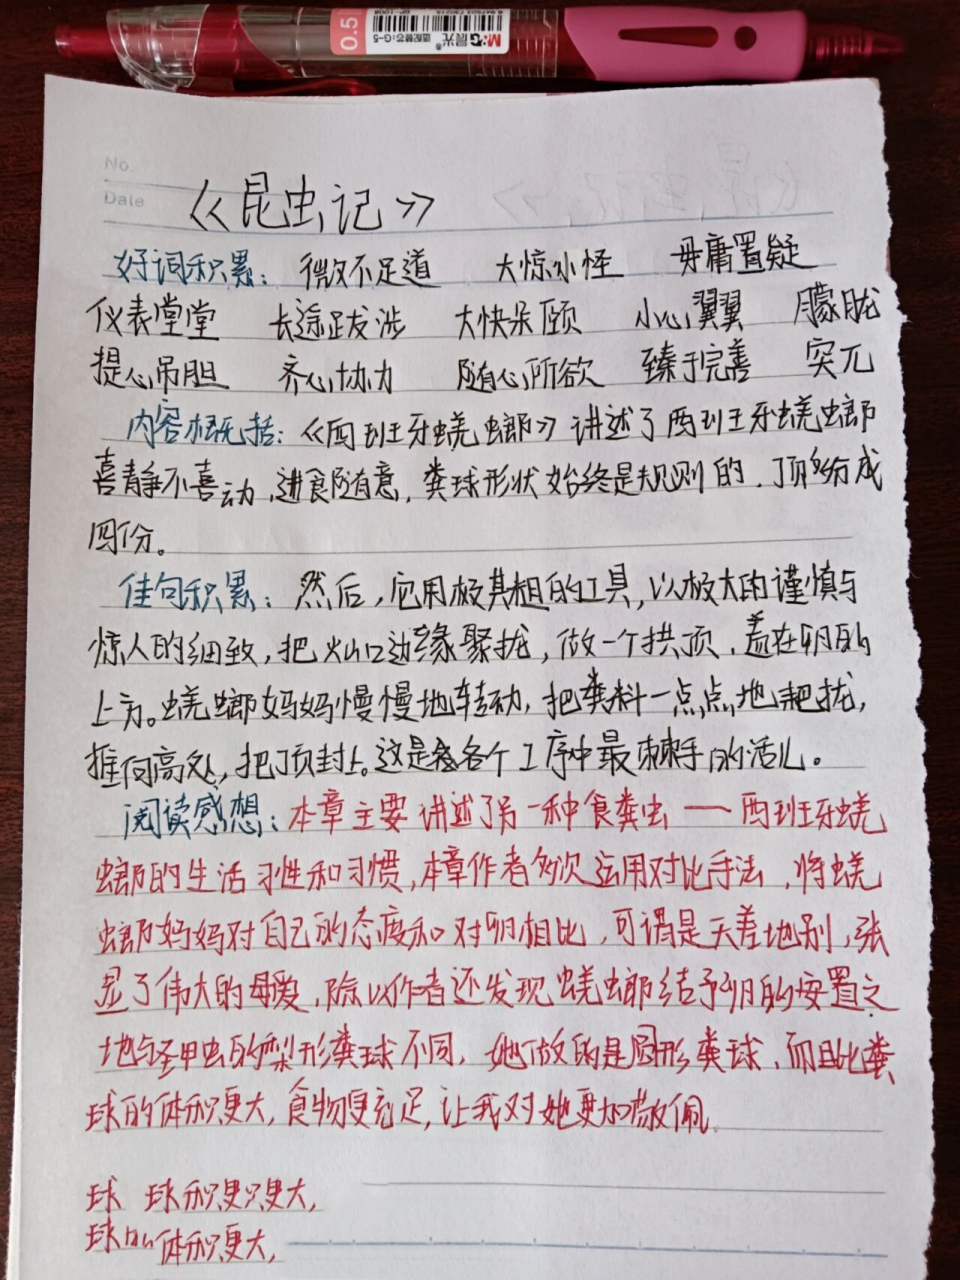 0.5
晨光
M&G
适配替芯:G-5
GP-1008
No.
Date
《昆虫记》
好词积累: 微不足道 大惊小怪 毋庸置疑
仪表堂堂 长途跋涉 大快朵颐 小心翼翼 朦胧
提心吊胆 齐心协力 随心所欲 臻于完善 突兀
内容概括:《西班牙蜣螂》讲述了西班牙蜣螂
喜静不喜动,进食随意,粪球形状始终是规则的,顶多分成
四份。
佳句积累: 然后,它用极其粗的工具,以极大的谨慎与
惊人的细致,把火山口边缘聚拢,做一个拱顶,盖在卵的
上方。蜣螂妈妈慢慢地转动,把粪料一点点地耙拢,
推向高处,把顶封上。这是各个工序中最棘手的活儿。
阅读感想:本章主要讲述了另一种食粪虫——西班牙蜣
螂的生活习性和习惯,本章作者多次运用对比手法,将蜣
螂妈妈对自己的态度和对卵相比,可谓是天差地别,张
显了伟大的母爱,除以作者还发现蜣螂给予卵的安置之
地与圣甲虫的梨形粪球不同,她做的是圆形粪球,而且比粪
球的体积更大,食物更充足,让我对她更加敬佩.
球 球积更只更大,
球的体积更大,